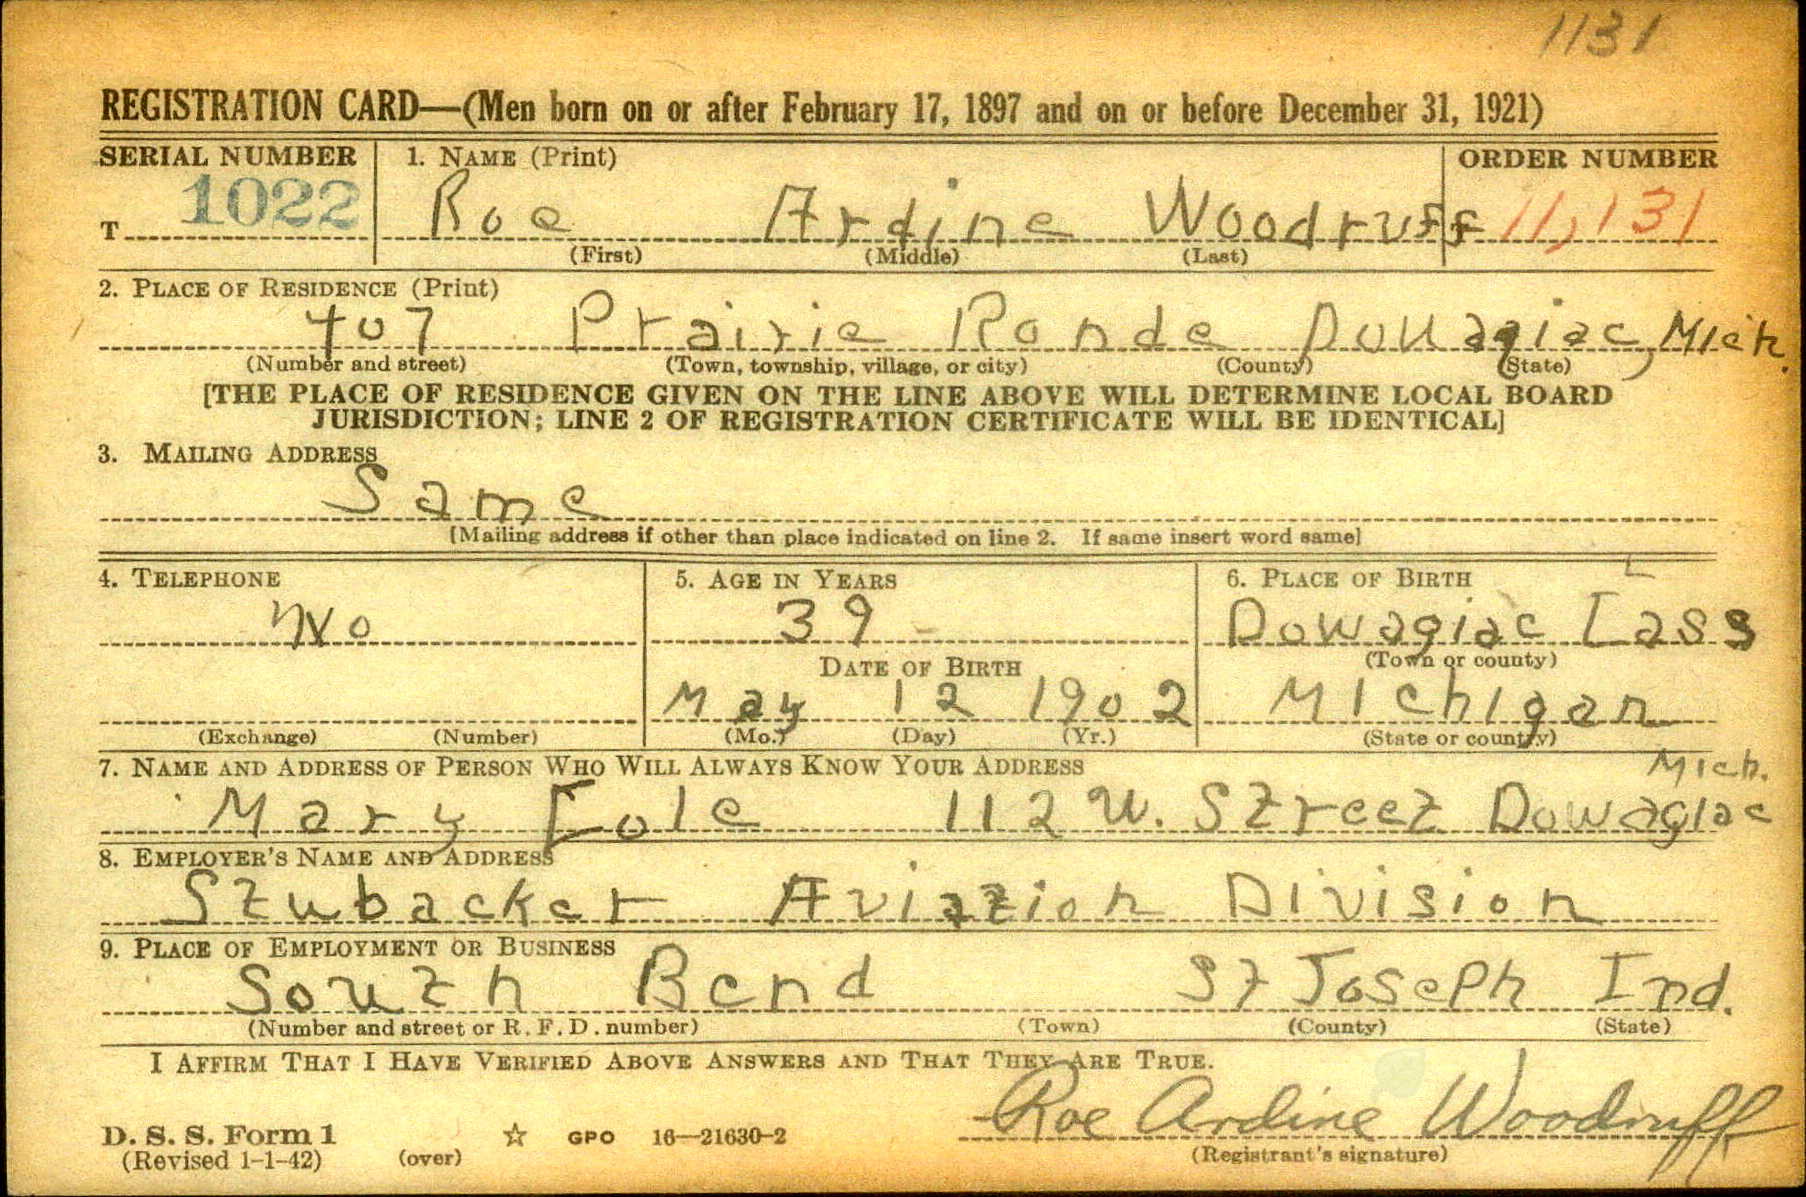 1131
REGISTRATION CARD—(Men born on or after February 17, 1897 and on or before December 31, 1921)
SERIAL NUMBER 1. NAME (Print) ORDER NUMBER
T 1022 Roe Ardine Woodruff 11,131
(First) (Middle) (Last)
2. PLACE OF RESIDENCE (Print)
407 Prairie Ronde Dowagiac, Mich.
(Number and street) (Town, township, village, or city) (County) (State)
[THE PLACE OF RESIDENCE GIVEN ON THE LINE ABOVE WILL DETERMINE LOCAL BOARD
JURISDICTION; LINE 2 OF REGISTRATION CERTIFICATE WILL BE IDENTICAL]
3. MAILING ADDRESS
Same
[Mailing address if other than place indicated on line 2. If same insert word same]
4. TELEPHONE 5. AGE IN YEARS 6. PLACE OF BIRTH
No 39 Dowagiac Cass
DATE OF BIRTH (Town or county)
May 12 1902 Michigan
(Exchange) (Number) (Mo.) (Day) (Yr.) (State or country)
7. NAME AND ADDRESS OF PERSON WHO WILL ALWAYS KNOW YOUR ADDRESS Mich.
Mary Cole 112 W. Street Dowagiac
8. EMPLOYER'S NAME AND ADDRESS
Stubacker Aviation Division
9. PLACE OF EMPLOYMENT OR BUSINESS
South Bend St Joseph Ind.
(Number and street or R. F. D. number) (Town) (County) (State)
I AFFIRM THAT I HAVE VERIFIED ABOVE ANSWERS AND THAT THEY ARE TRUE.
Roe Ardine Woodruff
D. S. S. Form 1 ☆ GPO 16—21630-2
(Revised 1-1-42) (over) (Registrant's signature)